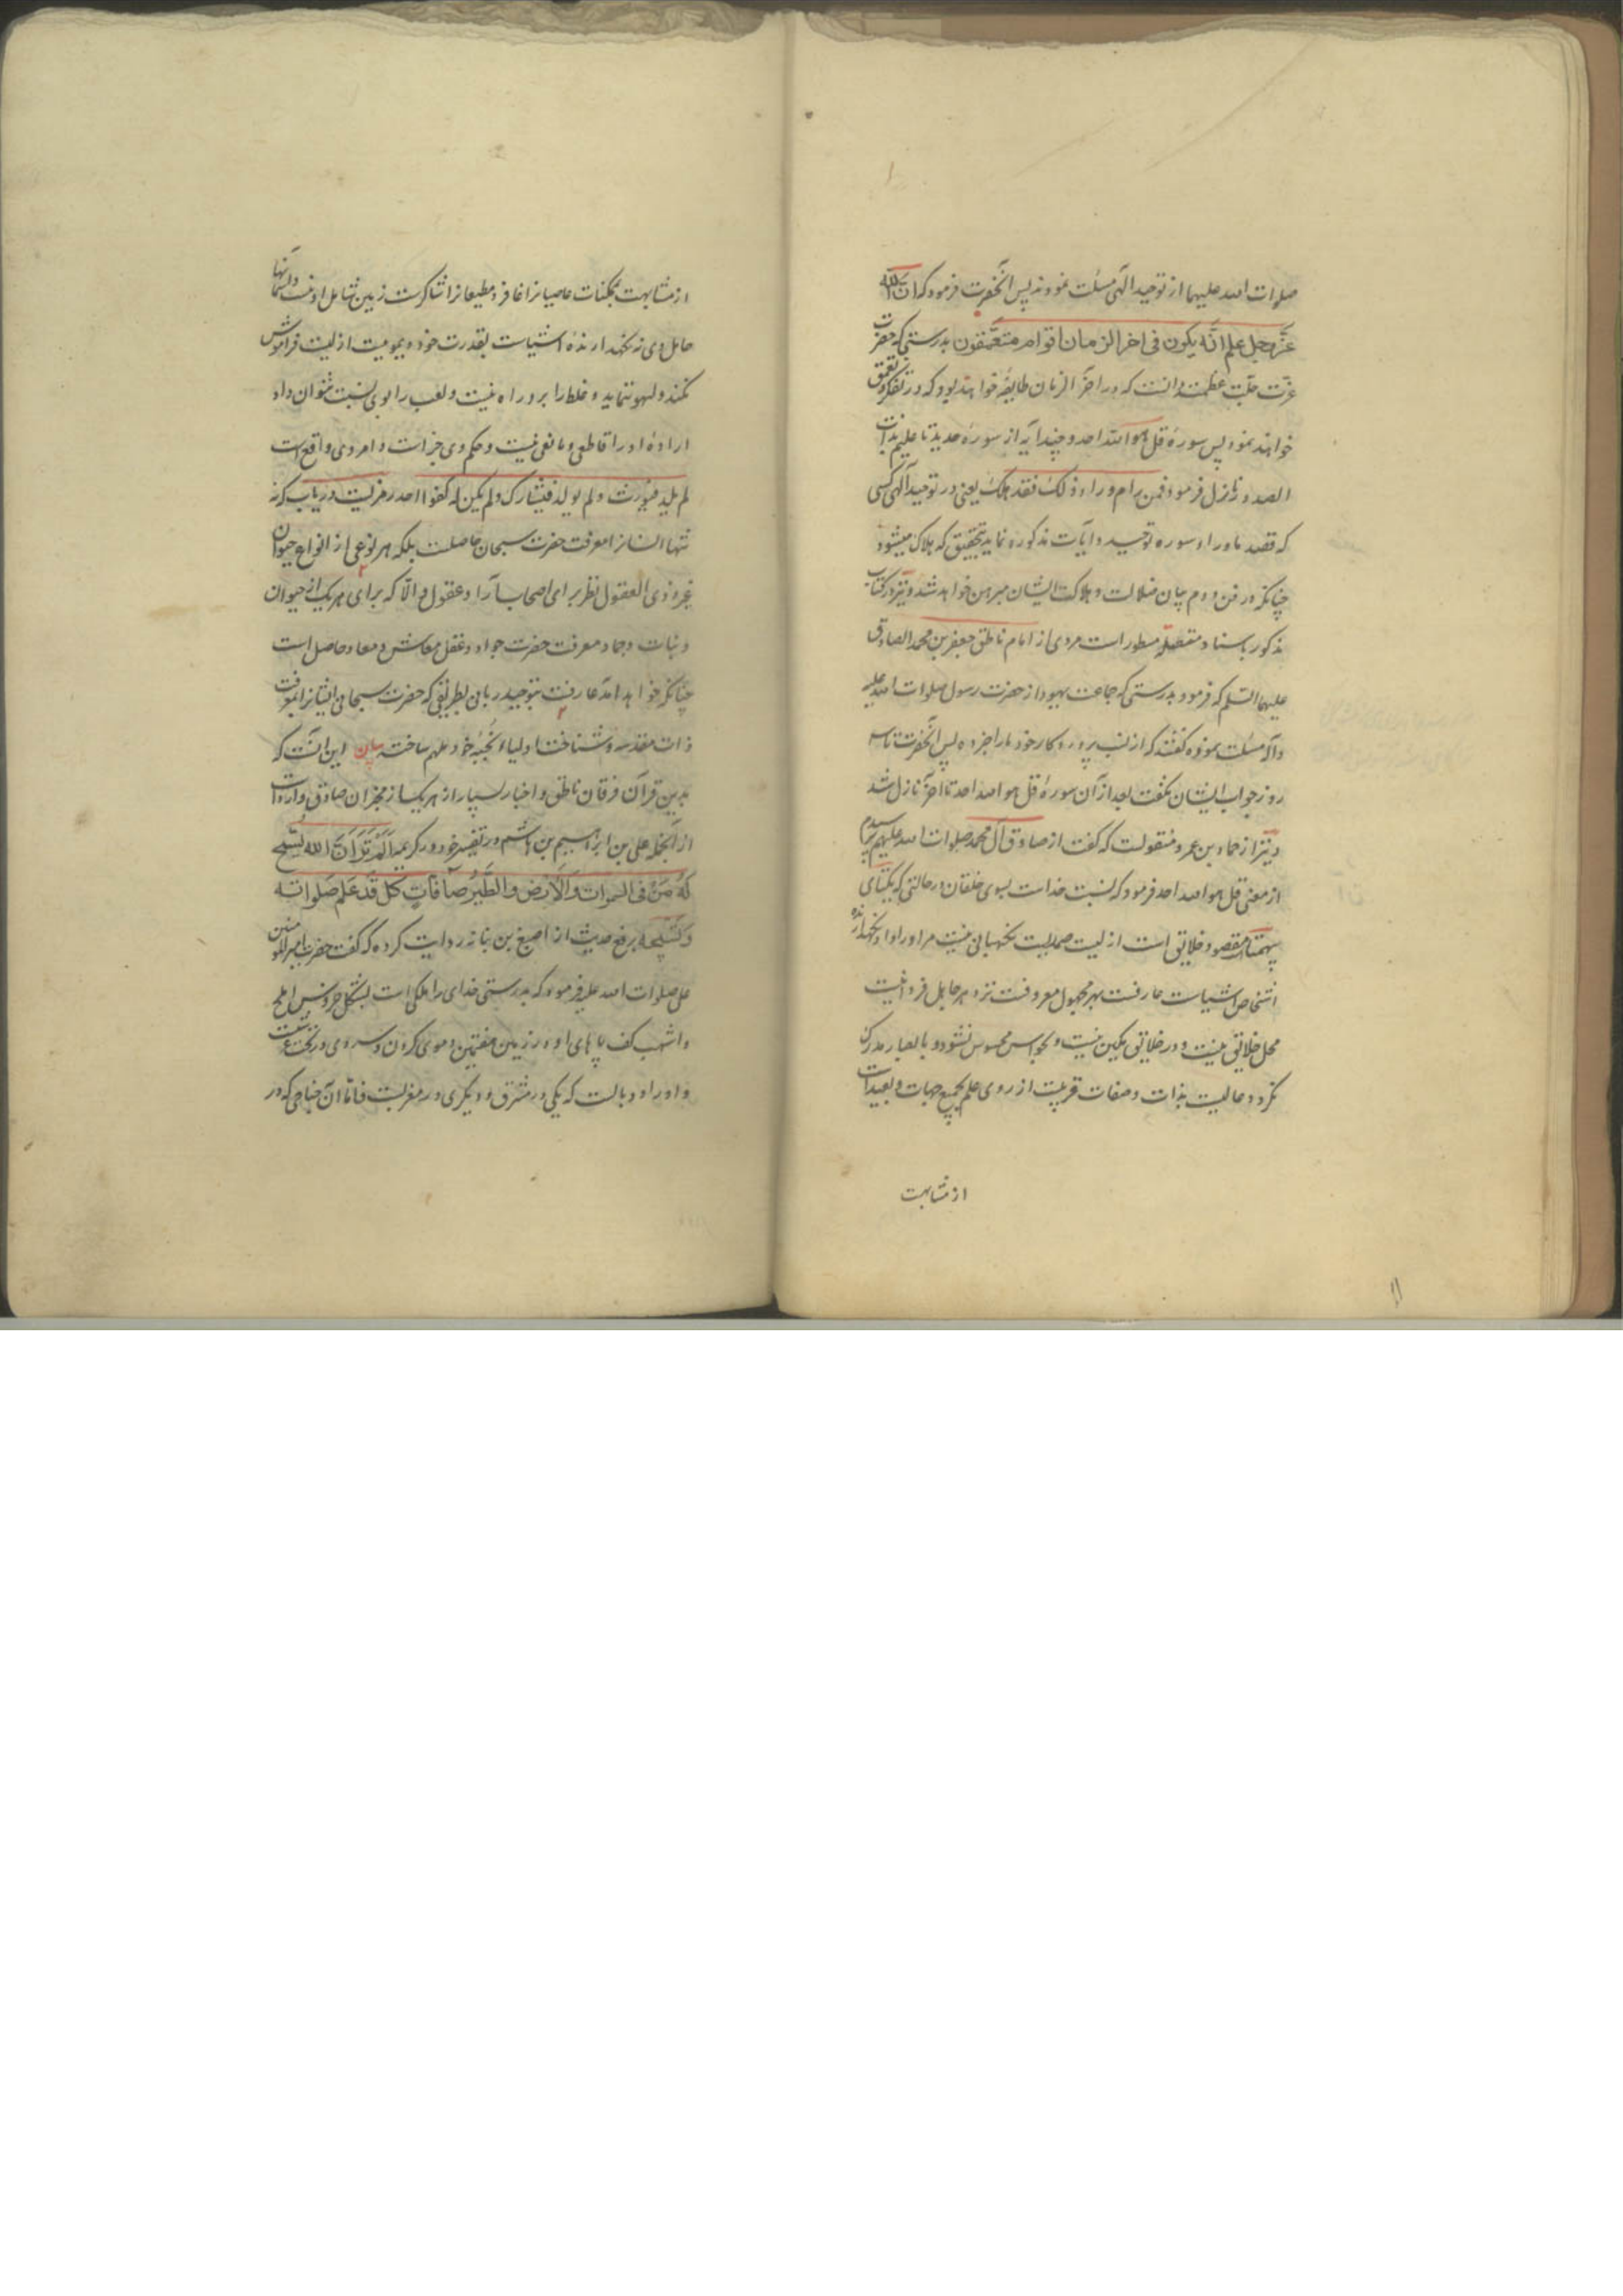 صلوات الله علیهما از توحید الهی مسئلت نمودند پس آنحضرت فرمود که ان الله
عز وجل علم انه یکون فی اخر الزمان اقوام متعمقون بدرستی که حضرت
عزت جلت عظمته دانست که در آخر الزمان طایفه خواهند بود که در تفکر تعمق
خواهند نمود پس سورهٔ قل هو الله احد و چند آیه از سورهٔ حدید تا علیم بذات
الصدور نازل فرمود فمن رام وراء ذلک فقد هلک یعنی در توحید الهی کسی
که قصد ماوراء سوره توحید و آیات مذکوره نماید بتحقیق که هلاک میشود
چنانکه در فن دوم بیان ضلالت و هلاکت ایشان مبرهن خواهد شد و نیز در کتاب
مذکور باسناد متصله مسطور است مروی از امام ناطق جعفر بن محمد الصادق
علیهما السلم که فرمود بدرستی که جماعت یهود از حضرت رسول صلوات الله علیه
وآله مسئلت نموده گفتند که از نسب پروردکار خود ما را خبر ده پس آنحضرت تا سه
روز جواب ایشان نگفت بعد از آن سورهٔ قل هو الله احد تا آخر نازل شد
و نیز از حماد بن عمرو منقولست که گفت از صادق آل محمد صلوات الله علیهم پرسیدم
از معنی قل هو الله احد فرمود که نسبت خداست بسوی خلقان در حالتی که یکتای
بیهمتا مقصود خلایق است ازلیست صمدیست نگهبانی نیست مر او را و او نگهدارنده
اشخاص اشیاست عارفست بهر مجهول معروفست نزد هر جاهل فرد نیست
محل خلایق نیست و در خلایق مکین نیست و بحواس محسوس نشود و بابصار مدرک
نکردد عالیست بذات و صفات قریبست از روی علم بجمیع جهات و بعید است
از مشابهت
از مشابهت بممکنات عاصیانرا غافر و مطیعانرا شاکرست زمین شامل او نیست و آسمانها
حامل وی نه نگهدارندهٔ اشیاست بقدرت خود دیمومیت ازلیت فراموش
نکند و لهو ننماید و غلط را برو راه نیست و لعب را بوی نسبت نتوان داد
ارادهٔ او را قاطعی و مانعی نیست و حکم وی جزاست و امر وی واقع است
لم یلد فیورث و لم یولد فیشارک ولم یکن له کفوا احد رمزیست دریاب که نه
تنها انسانرا معرفت حضرت سبحان حاصلست بلکه هر نوعی از انواع حیوان
غیر ذی العقول نظر برای اصحاب آراء و عقول و الا که برای هر یک از حیوان
و نبات و جماد معرفت حضرت جواد و عقل معاش و معاد حاصل است
چنانکه خواهد آمد عارفست بتوحید ربانی بطریقی که حضرت سبحانی ایشانرا بمعرفت
ذات مقدسه و شناخت اولیاء انجبهٔ خود ملهم ساخته بیان این آنست که
بدین قرآن فرقان ناطق و اخبار بسیار از هر یک از مخبران صادق وارد است
از آنجمله علی بن ابراهیم بن هاشم در تفسیر خود در کریمه اَلَمْ تَرَ اَنَّ الله یُسَبِّحُ
لَهُ مَنْ فی السموات وَالْاَرْض وَالطَّیْرُ صَآفّاتٍ کُلٌّ قَدْ عَلِمَ صَلَواتَهُ
وَتَسْبیحَهُ برفع حدیث از اصبغ بن نباته روایت کرده که گفت حضرت امیر المومنین
علی صلوات الله علیه فرمود که بدرستی خدای را ملکی است بشکل خروس املح
و اشهب کف پاهای او در زمین هفتمین و موی کردن و سر وی در تحت عرشست
و او را دو بالست که یکی در مشرق و دیگری در مغربست فاما آن جناحی که در